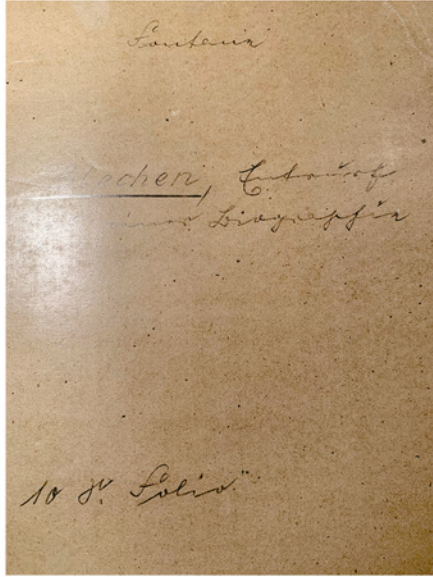 Fontane
Entwurf
Biographie
10 Folio